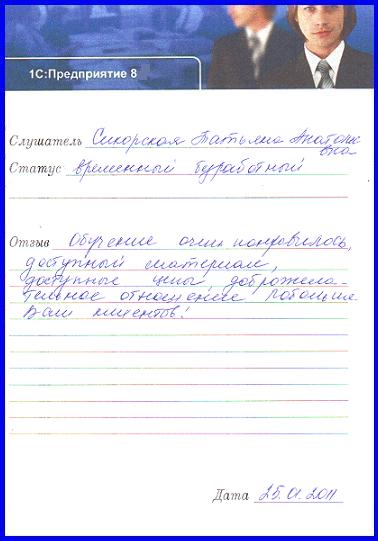 1С:Предприятие 8
Слушатель Сикорская Татьяна Анатоль
евна
Статус временный безработный
Отзыв Обучение очень понравилось,
доступный материал,
доступные цены, доброжела-
тельное отношение. Побольше
Вам клиентов!
Дата 25.01.2011